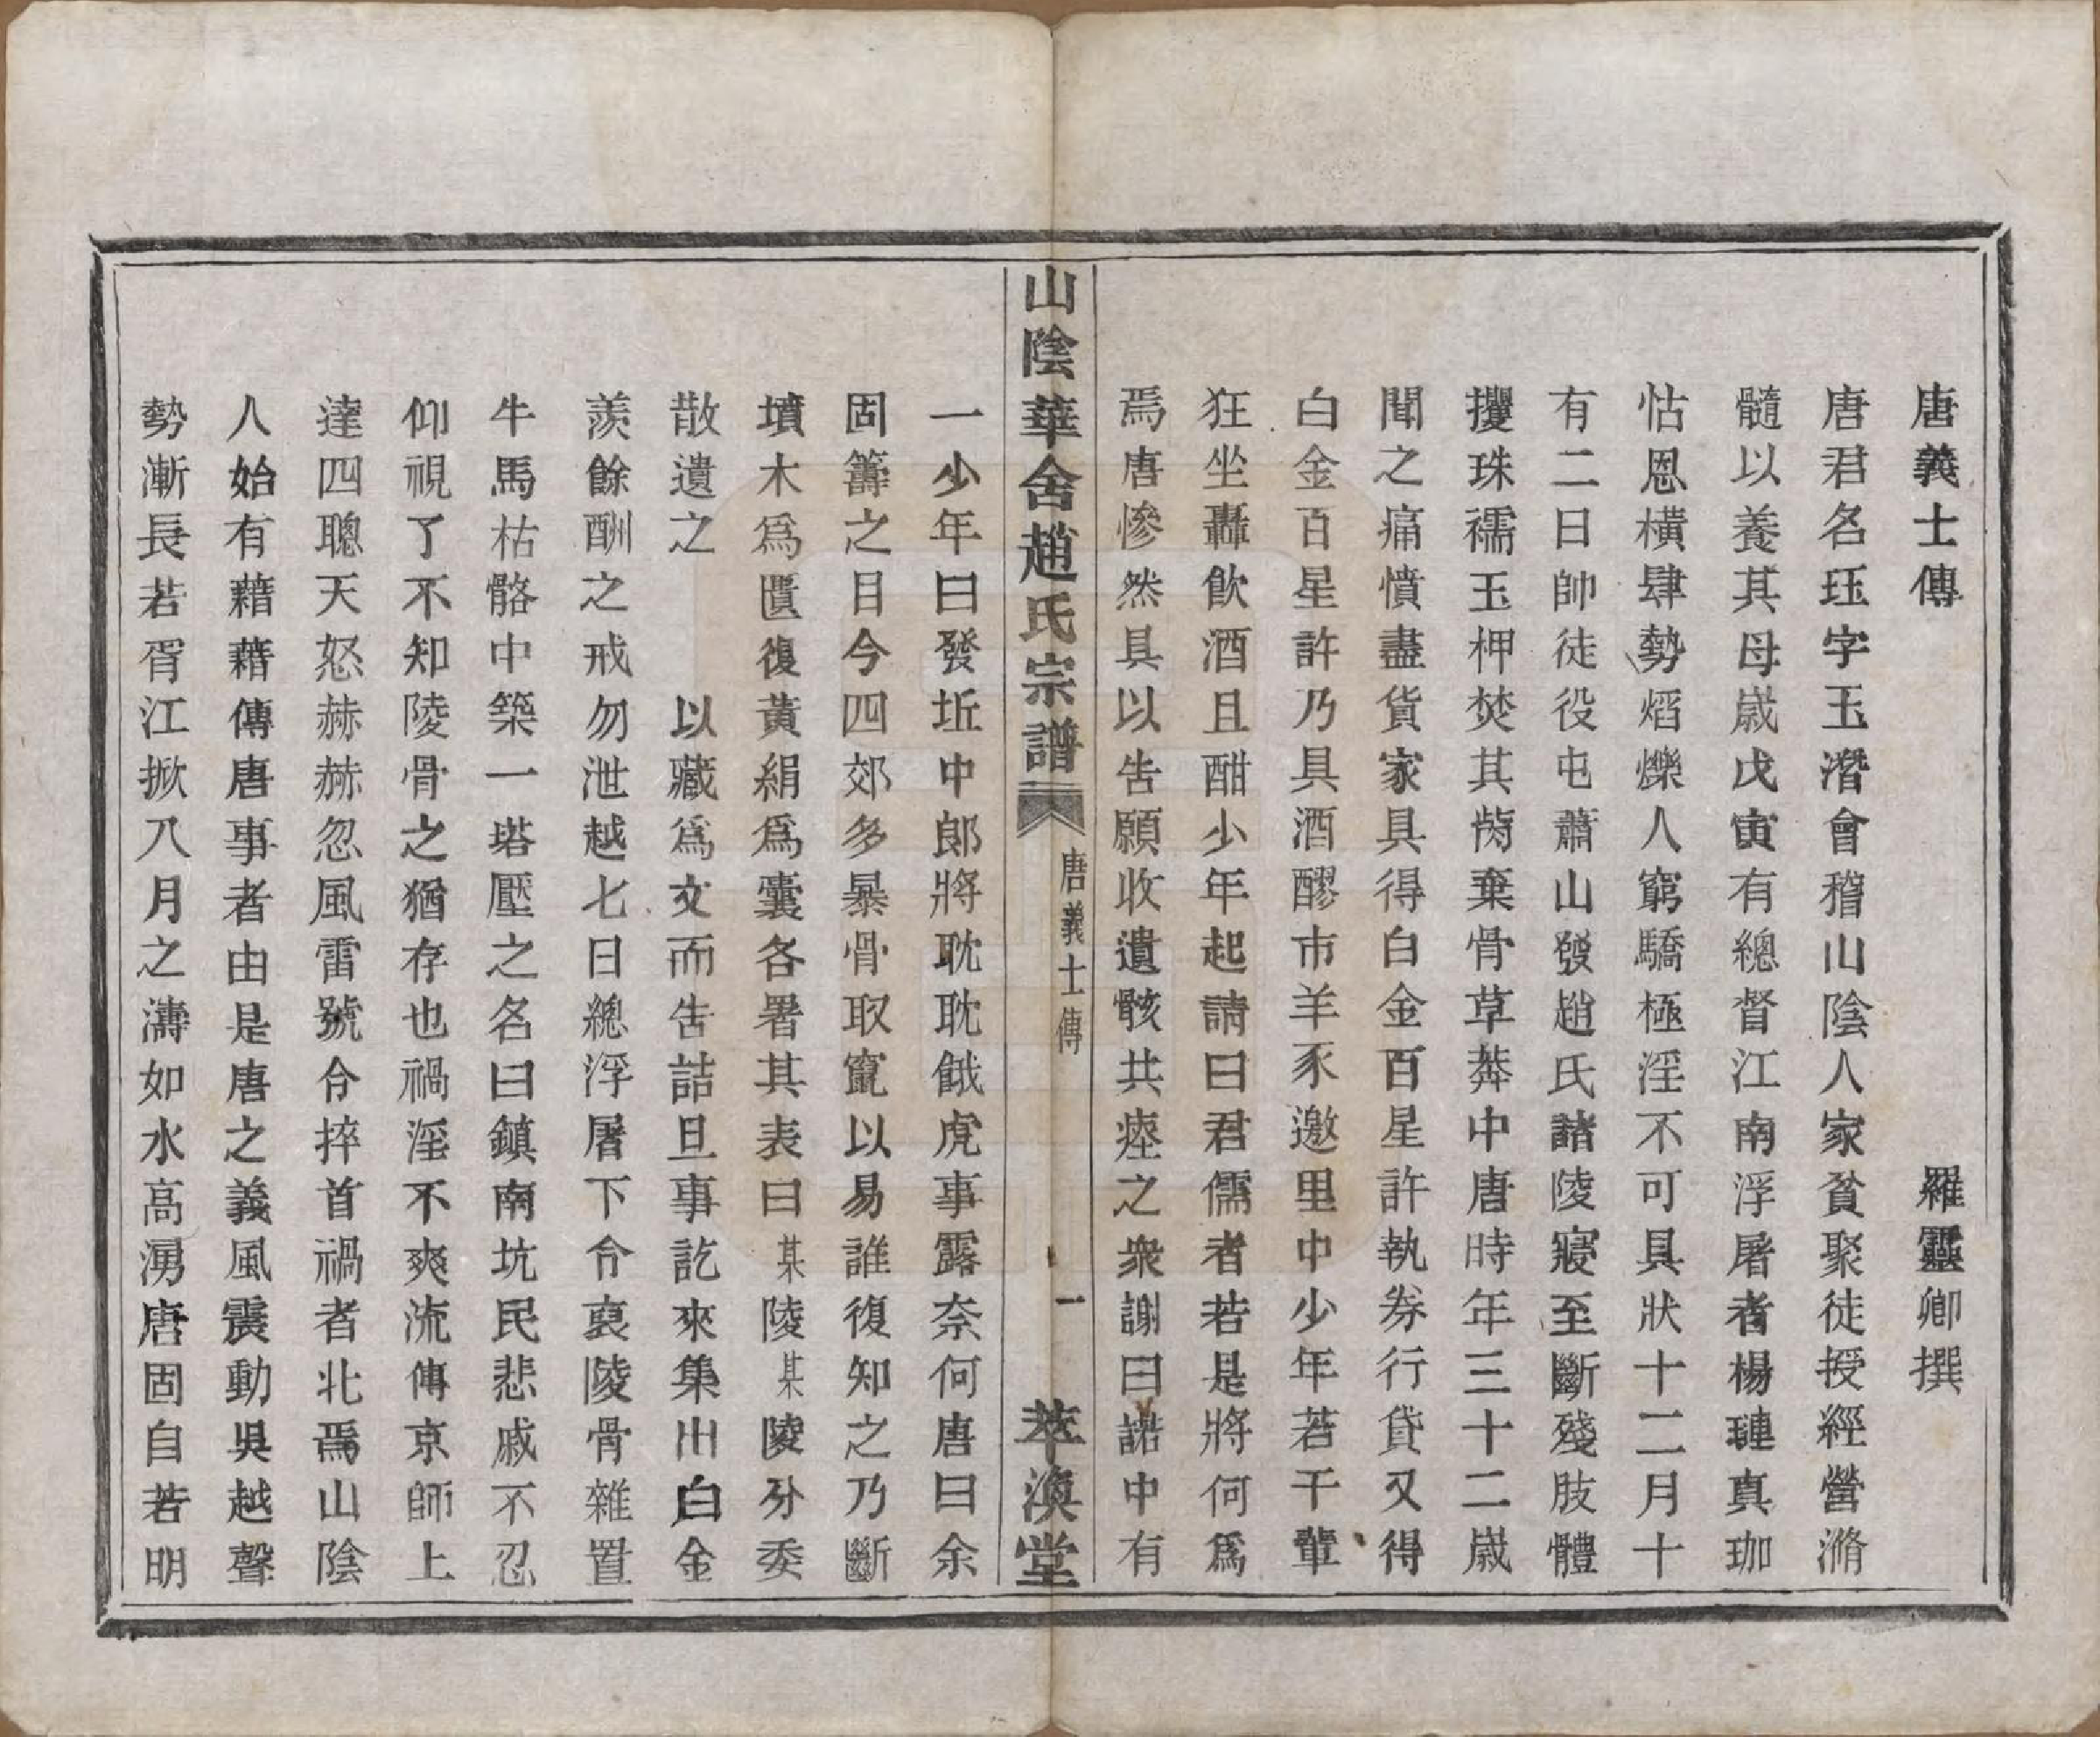 唐義士傳　羅靈卿撰
唐君名珏字玉潛會稽山陰人家貧聚徒授經營滫
髓以養其母歲戊寅有總督江南浮屠者楊璉真珈
怙恩橫肆勢熖爍人窮驕極淫不可具狀十二月十
有二日帥徒役屯蕭山發趙氏諸陵寢至斷殘肢體
攫珠襦玉柙焚其胔棄骨草莽中唐時年三十二歲
聞之痛憤盡貨家具得白金百星許執券行貸又得
白金百星許乃具酒醪市羊豕邀里中少年若干輩
狂坐轟飲酒且酣少年起請曰君儒者若是將何為
焉唐慘然具以告願收遺骸共瘞之衆謝曰諾中有
山陰華舍趙氏宗譜　唐義士傳　一　萃渙堂
一少年曰發坵中郎將耽耽餓虎事露奈何唐曰余
固籌之目今四郊多暴骨取竄以易誰復知之乃斷
墳木爲匱復黃絹爲囊各署其表曰某陵某陵分委
散遺之　以藏爲文而告詰旦事訖來集出白金
羨餘酬之戒勿泄越七日總浮屠下令裒陵骨雜置
牛馬枯骼中築一塔壓之名曰鎮南坑民悲戚不忍
仰視了不知陵骨之猶存也禍淫不爽流傳京師上
達四聰天怒赫赫忽風雷號令捽首禍者北焉山陰
人始有藉藉傳唐事者由是唐之義風震動吳越聲
勢漸長若胥江掀八月之濤如水高湧唐固自若明